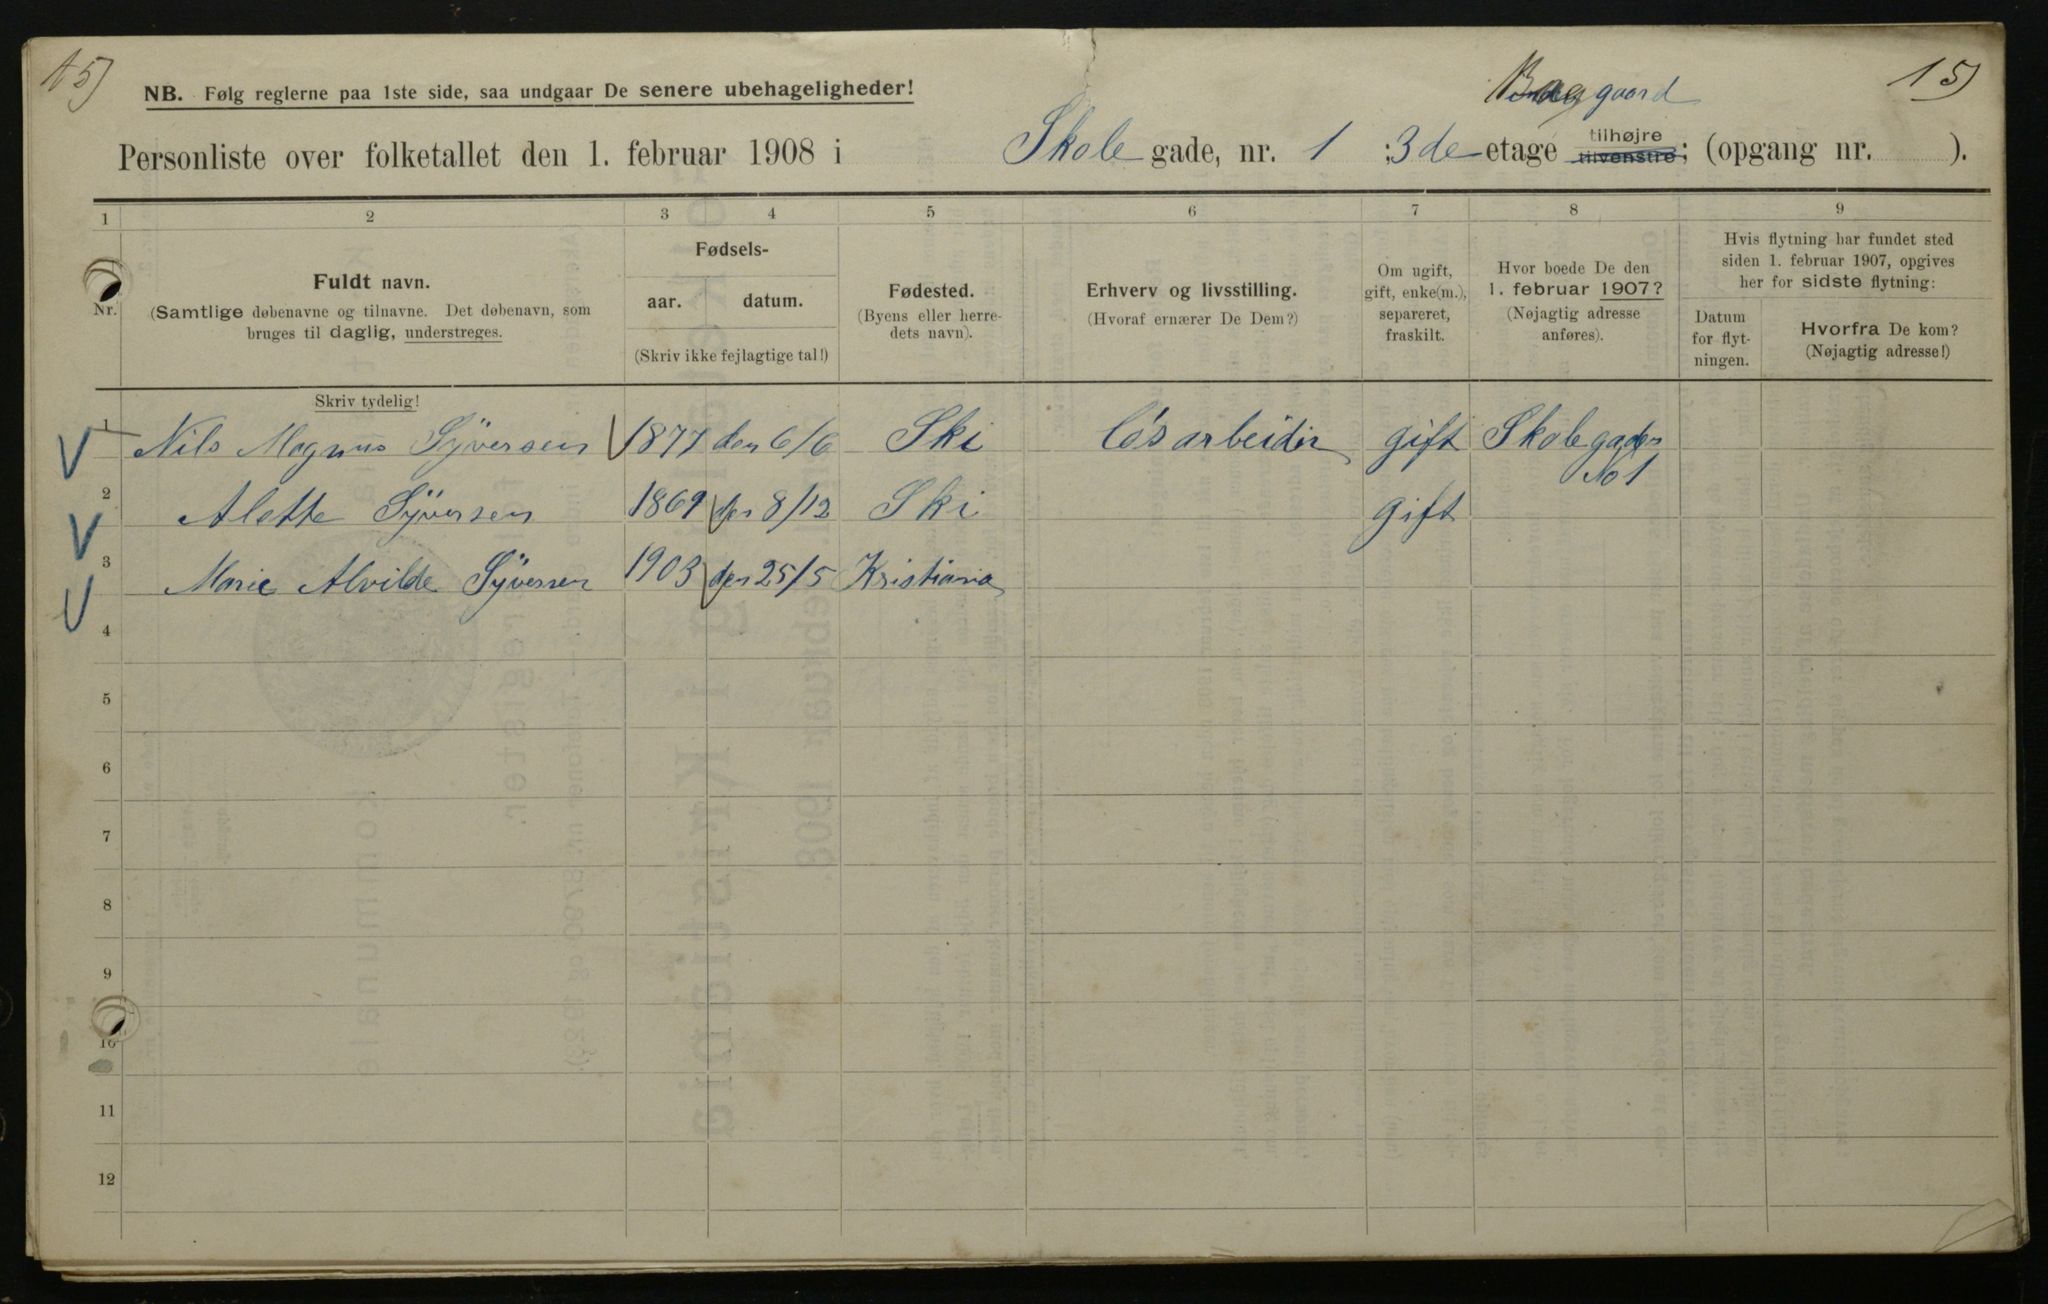 15)
Baggaard
15)
NB. Følg reglerne paa 1ste side, saa undgaar De senere ubehageligheder!
Personliste over folketallet den 1. februar 1908 i Skole gade, nr. 1 ; 3de etage tilhøjre tilvenstre; (opgang nr. ).
1 2 3 4 5 6 7 8 9
Nr.
Fuldt navn.
(Samtlige døbenavne og tilnavne. Det døbenavn, som
bruges til daglig, understreges.
Fødsels-
aar. datum.
(Skriv ikke fejlagtige tal!)
Fødested.
(Byens eller herre-
dets navn).
Erhverv og livsstilling.
(Hvoraf ernærer De Dem?)
Om ugift,
gift, enke(m.),
separeret,
fraskilt.
Hvor boede De den
1. februar 1907?
(Nøjagtig adresse
anføres).
Hvis flytning har fundet sted
siden 1. februar 1907, opgives
her for sidste flytning:
Datum
for flyt-
ningen.
Hvorfra De kom?
(Nøjagtig adresse!)
Skriv tydelig!
1 Nils Magnus Syversen 1877 den 6/6 Ski løsarbeider gift Skolegaden
No 1
2 Alette Syversen 1869 den 8/12 Ski gift
3 Marie Alvilde Syversen 1903 den 25/5 Kristiania
4
5
6
7
8
9
10
11
12